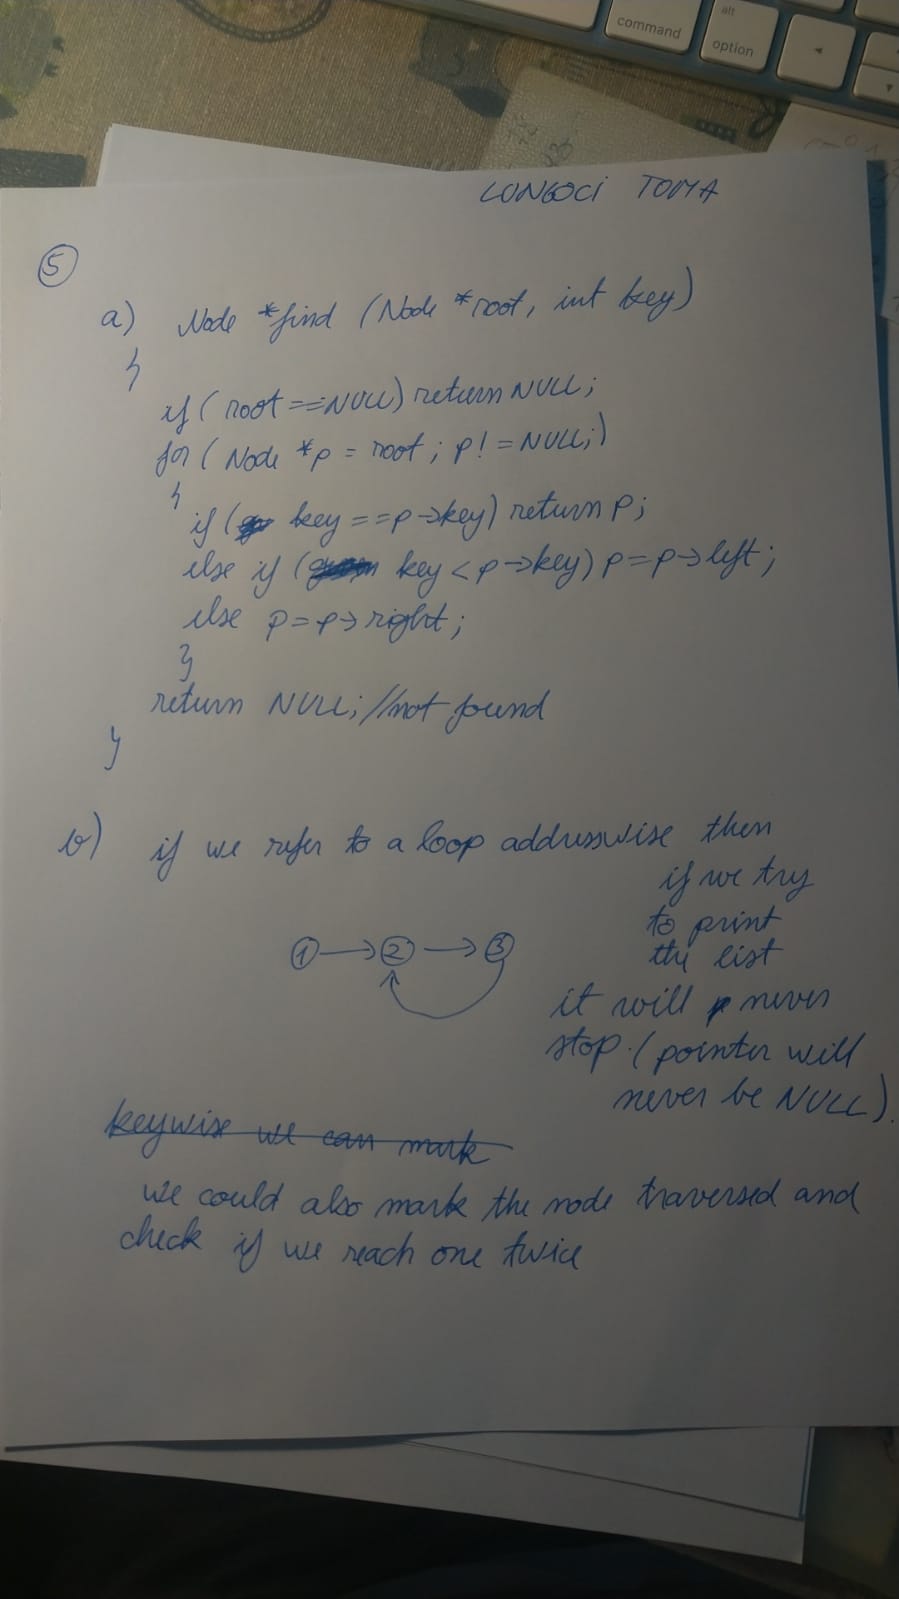 command
alt
option
LUNGOCI TOMA
5
a) Node *find (Node *root, int key)
{
if (root == NULL) return NULL;
for (Node *p = root; p != NULL;)
{
if ( key == p->key) return p;
else if ( key < p->key) p = p->left;
else p = p->right;
}
return NULL; //not found
}
b) if we refer to a loop addresswise then
if we try
to print
the list
1 → 2 → 3
it will never
stop. (pointer will
never be NULL).
keywise we can mark
we could also mark the node traversed and
check if we reach one twice